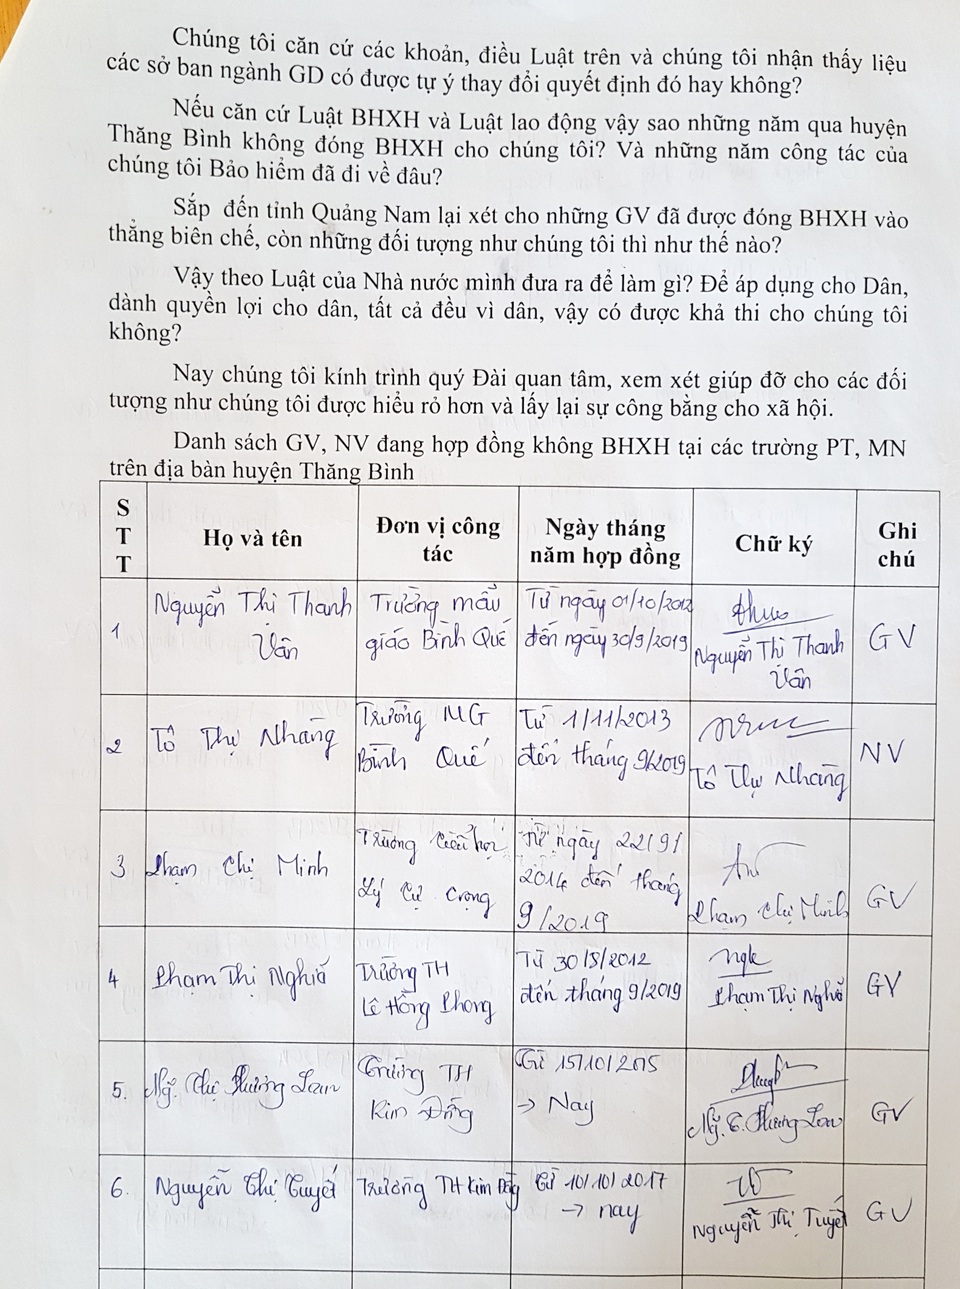 Chúng tôi căn cứ các khoản, điều Luật trên và chúng tôi nhận thấy liệu
các sở ban ngành GD có được tự ý thay đổi quyết định đó hay không?
Nếu căn cứ Luật BHXH và Luật lao động vậy sao những năm qua huyện
Thăng Bình không đóng BHXH cho chúng tôi? Và những năm công tác của
chúng tôi Bảo hiểm đã đi về đâu?
Sắp đến tỉnh Quảng Nam lại xét cho những GV đã được đóng BHXH vào
thẳng biên chế, còn những đối tượng như chúng tôi thì như thế nào?
Vậy theo Luật của Nhà nước mình đưa ra để làm gì? Để áp dụng cho Dân,
dành quyền lợi cho dân, tất cả đều vì dân, vậy có được khả thi cho chúng tôi
không?
Nay chúng tôi kính trình quý Đài quan tâm, xem xét giúp đỡ cho các đối
tượng như chúng tôi được hiểu rỏ hơn và lấy lại sự công bằng cho xã hội.
Danh sách GV, NV đang hợp đồng không BHXH tại các trường PT, MN
trên địa bàn huyện Thăng Bình
S T T Họ và tên Đơn vị công tác Ngày tháng năm hợp đồng Chữ ký Ghi chú
1 Nguyễn Thị Thanh Vân Trường mẫu giáo Bình Quế Từ ngày 01/10/2012 đến ngày 30/9/2019 Nguyễn Thị Thanh Vân GV
2 Tô Thị Nhàng Trường MG Bình Quế Từ 1/11/2013 đến tháng 9/2019 Tô Thị Nhàng NV
3 Phạm Thị Minh Trường Tiểu học Lý Tự Trọng Từ ngày 22/9/2014 đến tháng 9/2019 Phạm Thị Minh GV
4 Phạm Thị Nghĩa Trường TH Lê Hồng Phong Từ 30/8/2012 đến tháng 9/2019 Phạm Thị Nghĩa GV
5. Ng. Thị Phương Loan Trường TH Kim Đồng Từ 15/10/2015 → Nay Ng. T. Phương Loan GV
6. Nguyễn Thị Tuyết Trường TH Kim Đồng Từ 10/10/2017 → nay Nguyễn Thị Tuyết GV